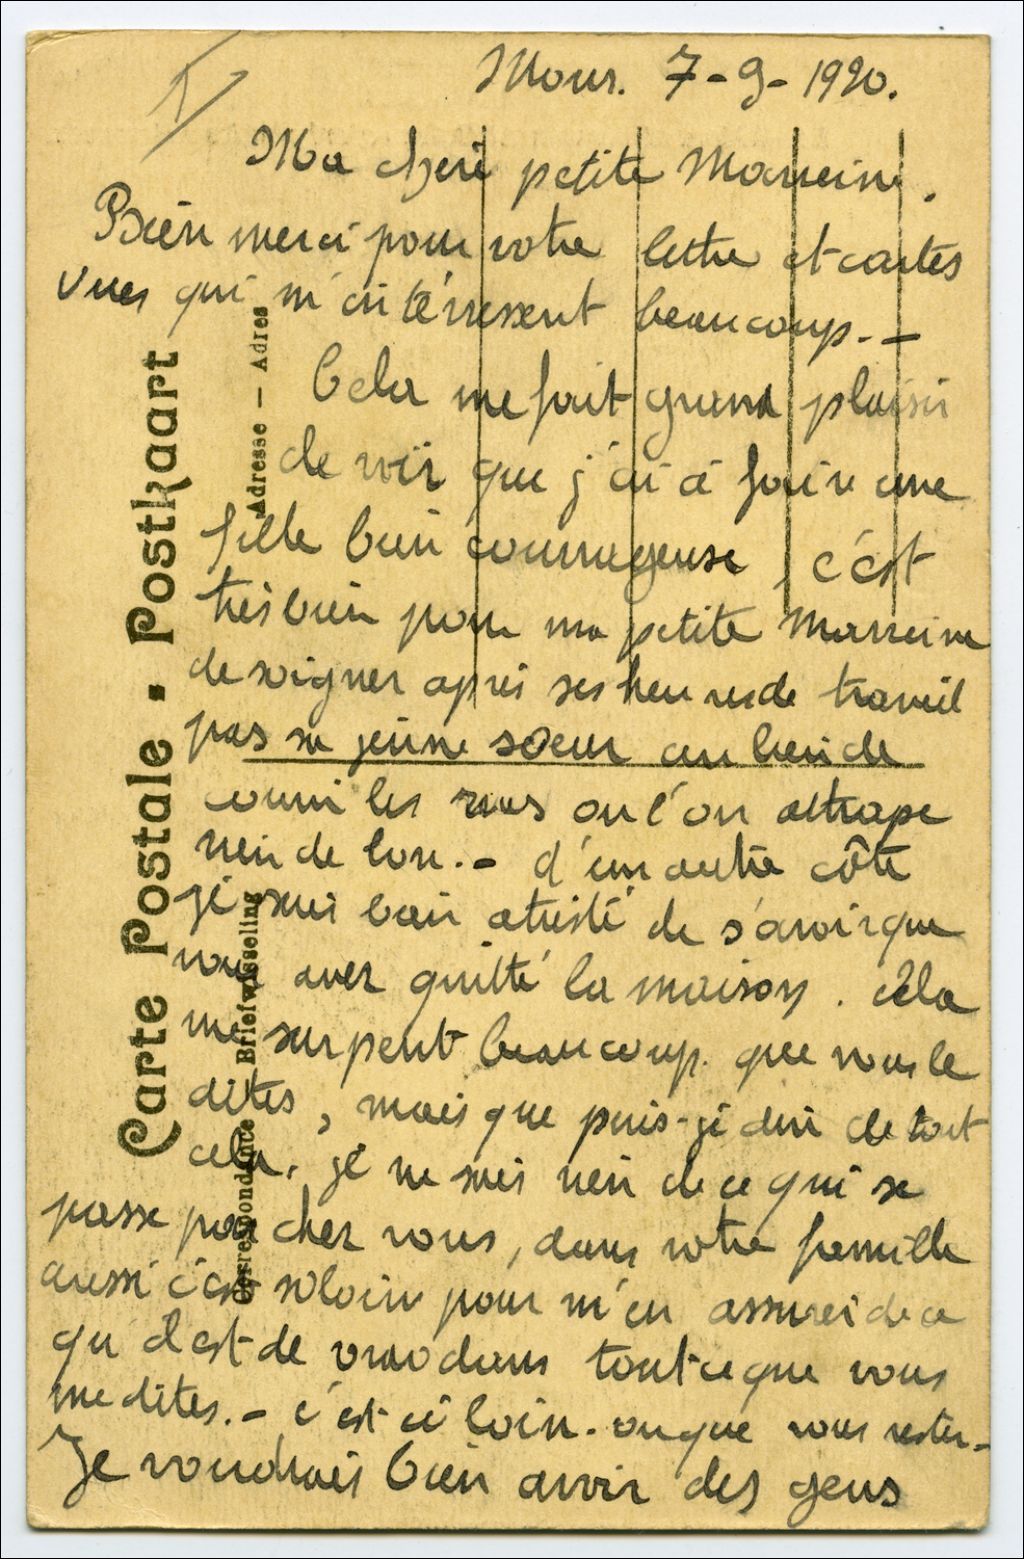 Mons. 7-9-1920.
Ma cheré petite Marreine.
Bien merci pour votre lettre et cartes
vues qui m'intérressent beaucoup.-
Cela me fait grand plaisir
de voir que j'ai à faire une
fille bien courrageuse, c'est
très bien pour ma petite Marreine
de soigner apres ses heures de travail
pas sa jeune soeur au lieu de
courir les rues ou l'on attrape
rien de bon.- d'un autre côté
je suis bien atristé de s'avoir que
vous avez quitté la maison. cela
me surpent beaucoup. que vous le
dites, mais que puis-je dire de tout
cela, je ne sais rien de ce qui se
passe par chez vous, dans votre famille
aussi c'est si loin pour m'en assurer de ce
qu'il est de vrao dans tout ce que vous
me dites.- c'est si loin. ou que vous rester-
Je voudrais bien avoir des gens
Carte Postale - Postkaart
Correspondance Briefwisseling
Adresse - Adres